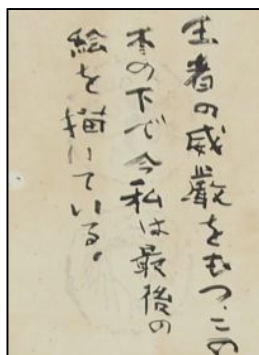 王者の威嚴をもつこの
木の下で今私は最後の
絵を描いている。